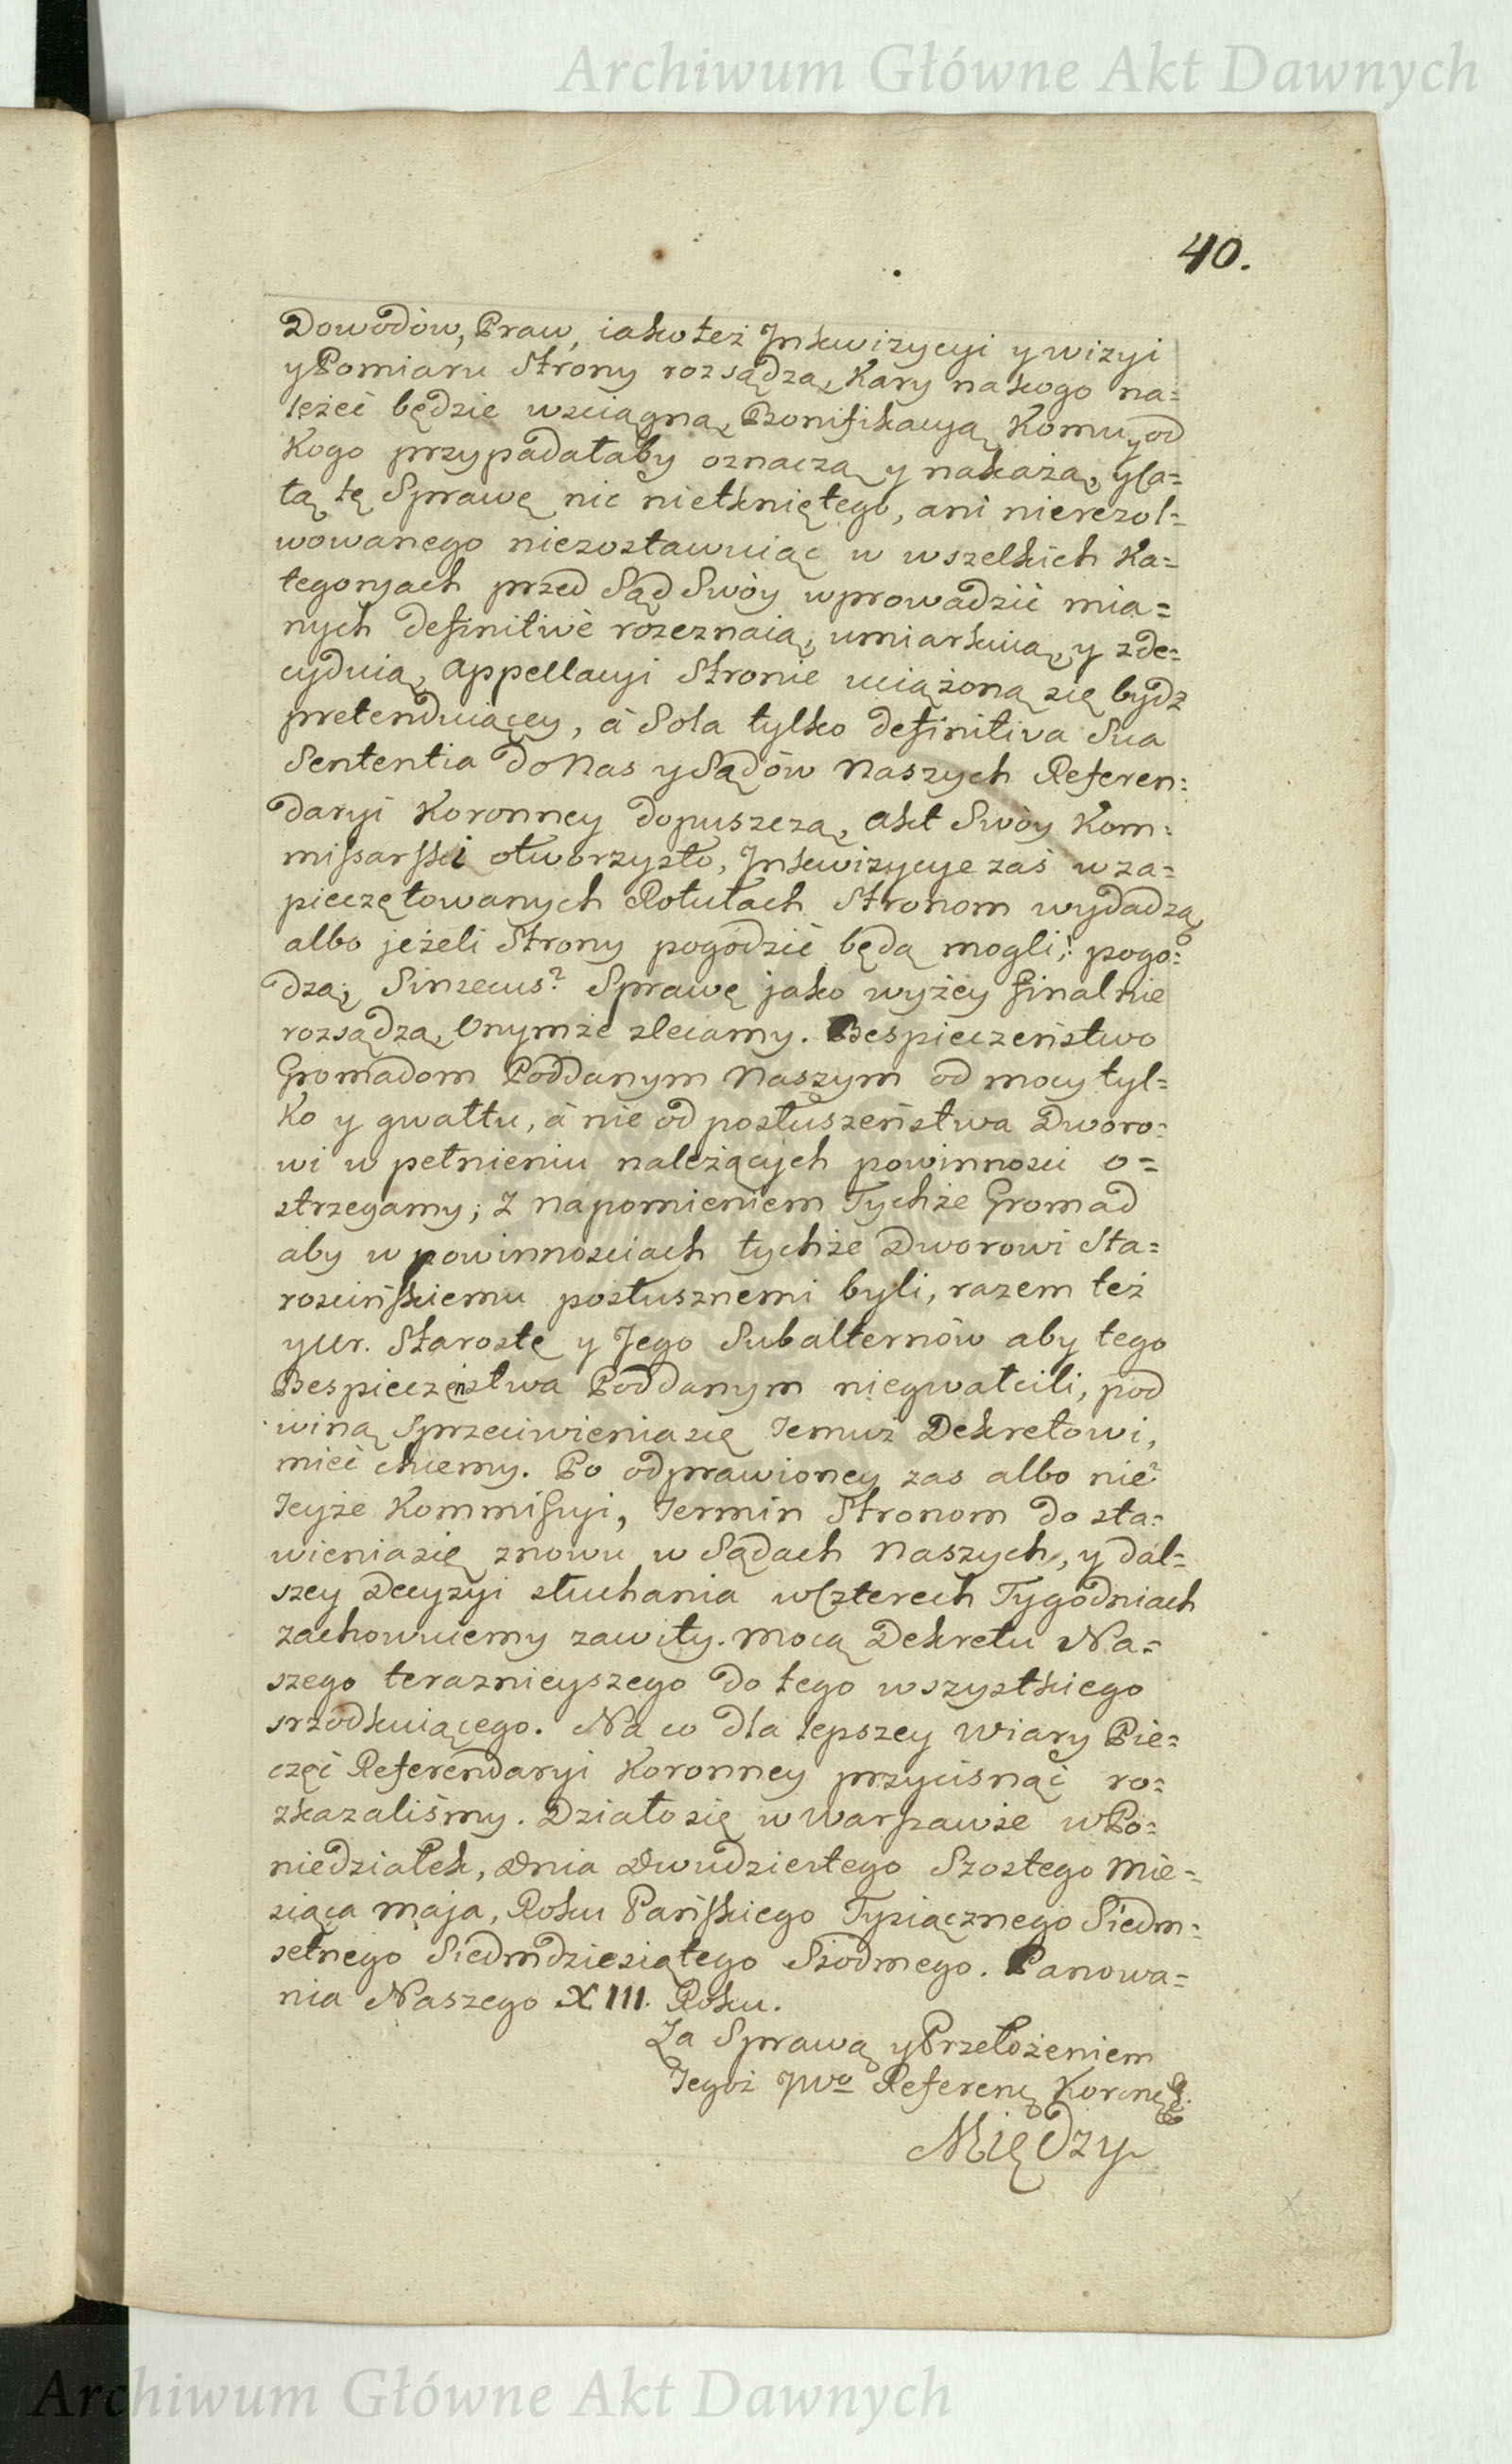 Archiwum Główne Akt Dawnych
40.
Dowodów, Praw, iako też Inkwizycyi y wizyi
y Pomiaru Strony rozsądzą, Kary na kogo na=
leżeć będzie wsciągną, Bonifikacyą Komu y od
Kogo przypadałaby oznaczą y nakażą, y ca=
łą tę Sprawę nic nietkniętego, ani nierezol=
wowanego niezostawuiąc w wszelkich Ka=
tegoryach przed Sąd Swóy wprowadzić mia=
nych definitivè rozeznaią, umiarkuią, y zde=
cyduią, Appellacyi Stronie uciążoną się bydz
pretenduiącey, à Sola tylko definitiva Sua
Sententia do Nas y Sądów Naszych Referen=
daryi Koronney dopuszczą, Akt Swóy Kom=
missarski otworzysto, Inkwizycye zaś w za=
pieczętowanych Rotułach Stronom wydadzą
albo jeżeli Strony pogodzić będą mogli; pogo=
dzą; Sinsecus? Sprawę jako wyżey finalnie
rozsądzą, Onymże zlecamy. Bespieczeństwo
Gromadom Poddanym Naszym od mocy tyl=
ko y gwałtu, à nie od posłuszeństwa Dworo=
wi w pełnieniu należących powinnosci o=
strzegamy; Z napomieniem Tychże Gromad
aby w powinnosciach tychże Dworowi Sta=
roscińskiemu posłusznemi byli, razem też
y Ur. Starostę y Jego Subalternów aby tego
Bespieczeństwa Poddanym niegwałcili, pod
winą Sprzeciwienia się Temuż Dekretowi,
mieć chcemy. Po odprawioney zas albo nie
Teyże Kommissyi, Termin Stronom do sta=
wienia się znowu w Sądach Naszych, y dal=
szey Decyzyi słuchania w Czterech Tygodniach
zachowuiemy zawity. Mocą Dekretu Na=
szego teraznieyszego do tego wszystkiego
srzodkuiącego. Na co dla lepszey Wiary Pie=
częć Referendaryi Koronney przycisnąć ro=
zkazaliśmy. Działo się w Warszawie w Po=
niedziałek, Dnia Dwudziestego Szostego Mie=
siąca Maja, Roku Pańskiego Tysiącznego Siedm=
setnego Siedmdziesiątego Siodmego. Panowa=
nia Naszego XIII. Roku.
Za Sprawą y Przełożeniem
Tegoż JWo Referen Koron
Między
Archiwum Główne Akt Dawnych